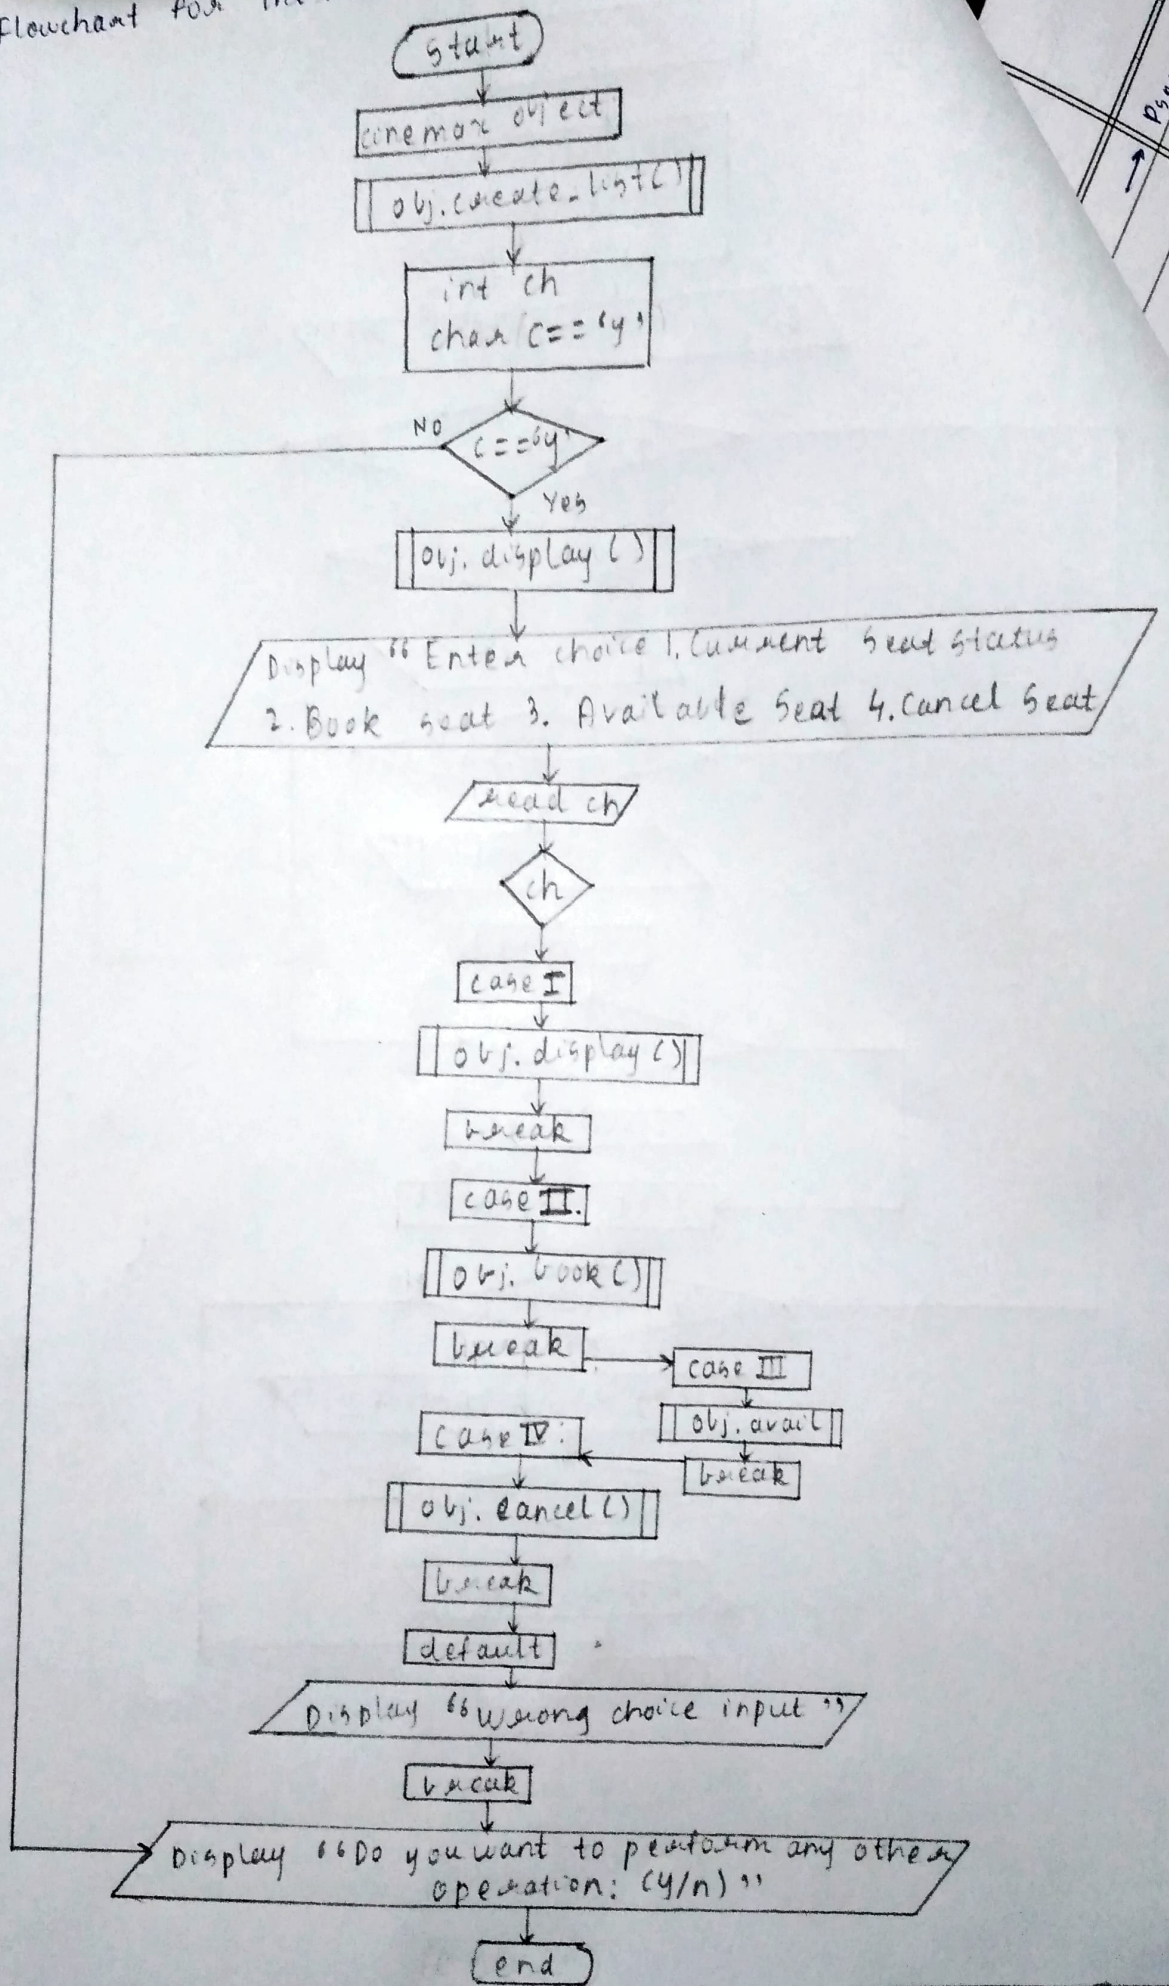 Flowchart for
Start
cinemax object
obj.create_list()
int ch
char c=='y'
No
c=='y'
Yes
obj.display()
Display "Enter choice 1.Current Seat Status
2.Book seat 3. Available Seat 4.Cancel Seat
read ch
ch
case I
obj.display()
break
case II.
obj.book()
break
case III
obj.avail
case IV:
break
obj.cancel()
break
default
Display "Wrong choice input"
break
Display "Do you want to perform any other
operation: (y/n)"
end